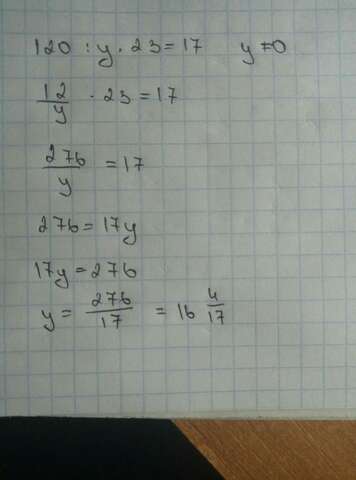 120 : y · 23 = 17 y ≠ 0
12/y · 23 = 17
276/y = 17
276 = 17y
17y = 276
y = 276/17 = 16 4/17